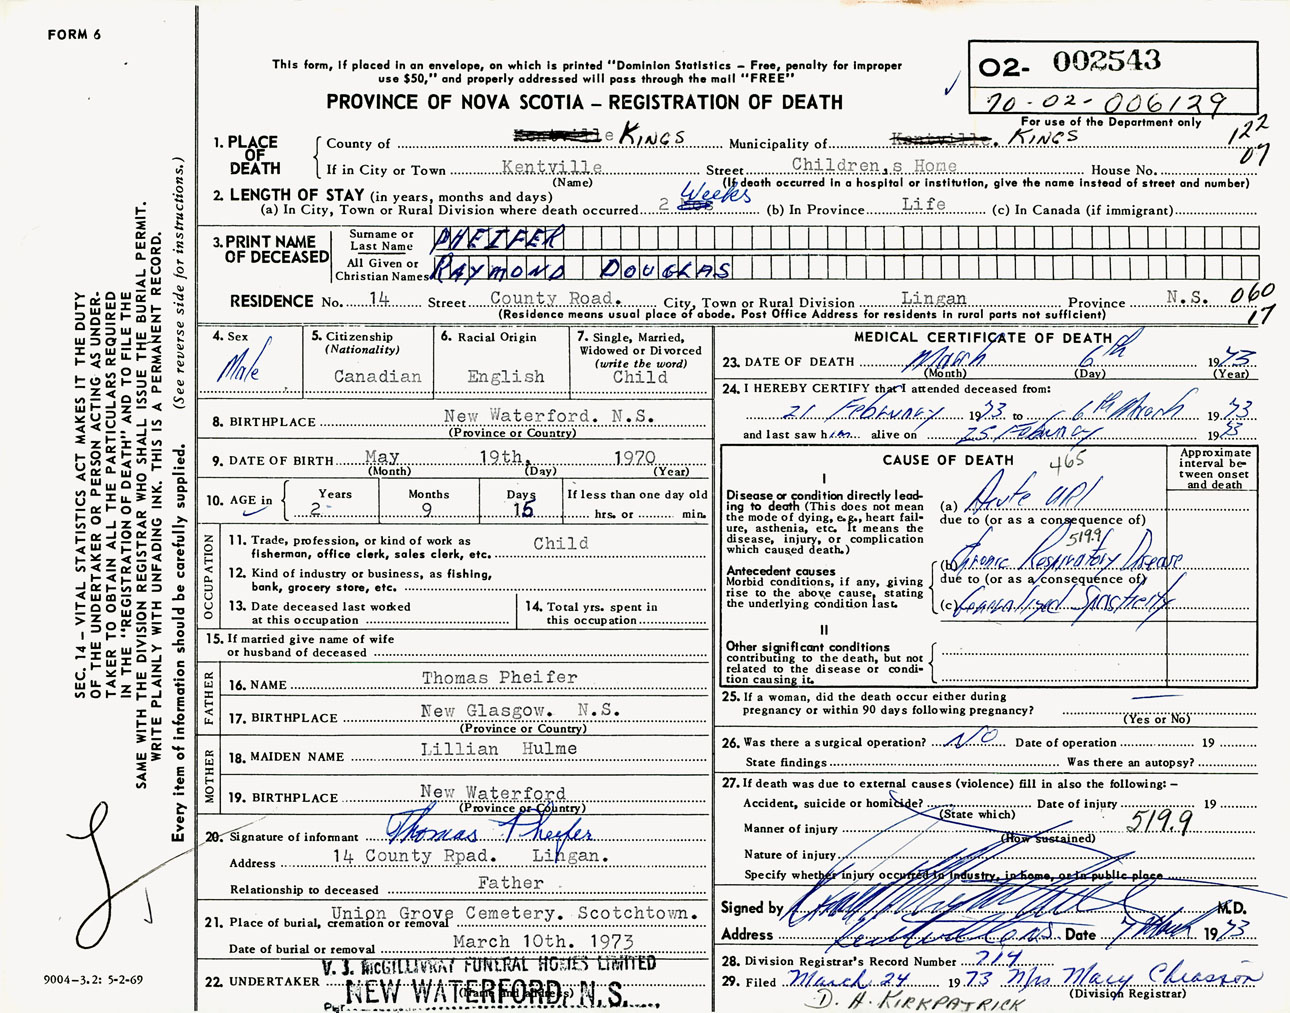 FORM 6
This form, if placed in an envelope, on which is printed "Dominion Statistics – Free, penalty for improper
use $50," and properly addressed will pass through the mail "FREE"
PROVINCE OF NOVA SCOTIA – REGISTRATION OF DEATH
O2- 002543
70-02-006129
For use of the Department only
122
07
1. PLACE OF DEATH
County of KINGS Municipality of KINGS
If in City or Town Kentville Street Children,s Home House No.
(Name) (If death occurred in a hospital or institution, give the name instead of street and number)
2. LENGTH OF STAY (in years, months and days)
(a) In City, Town or Rural Division where death occurred 2 Weeks (b) In Province Life (c) In Canada (if immigrant)
3. PRINT NAME OF DECEASED
Surname or Last Name PHEIFER
All Given or Christian Names RAYMOND DOUGLAS
RESIDENCE No. 14 Street County Road. City, Town or Rural Division Lingan Province N.S. 060
(Residence means usual place of abode. Post Office Address for residents in rural parts not sufficient) 17
4. Sex
Male
5. Citizenship
(Nationality)
Canadian
6. Racial Origin
English
7. Single, Married,
Widowed or Divorced
(write the word)
Child
8. BIRTHPLACE New Waterford. N.S.
(Province or Country)
9. DATE OF BIRTH May 19th, 1970
(Month) (Day) (Year)
10. AGE in
Years Months Days If less than one day old
2 9 15 hrs. or min.
OCCUPATION
11. Trade, profession, or kind of work as Child
fisherman, office clerk, sales clerk, etc.
12. Kind of industry or business, as fishing,
bank, grocery store, etc.
13. Date deceased last worked
at this occupation
14. Total yrs. spent in
this occupation
15. If married give name of wife
or husband of deceased
FATHER
16. NAME Thomas Pheifer
17. BIRTHPLACE New Glasgow. N.S.
(Province or Country)
MOTHER
18. MAIDEN NAME Lillian Hulme
19. BIRTHPLACE New Waterford
(Province or Country)
20. Signature of informant Thomas Pheifer
Address 14 County Rpad. Lingan.
Relationship to deceased Father
21. Place of burial, cremation or removal Union Grove Cemetery. Scotchtown.
Date of burial or removal March 10th. 1973
22. UNDERTAKER V. J. McGILLIVRAY FUNERAL HOMES LIMITED
(Name and address)
NEW WATERFORD, N.S.
MEDICAL CERTIFICATE OF DEATH
23. DATE OF DEATH March 6th 1973
(Month) (Day) (Year)
24. I HEREBY CERTIFY that I attended deceased from:
21 February 1973 to 6th March 1973
and last saw him alive on 25 February 1973
CAUSE OF DEATH 465
Approximate interval between onset and death
I
Disease or condition directly lead-
ing to death (This does not mean
the mode of dying, e.g., heart fail-
ure, asthenia, etc. It means the
disease, injury, or complication
which caused death.)
(a) Acute URI
due to (or as a consequence of)
519.9
Antecedent causes
Morbid conditions, if any, giving
rise to the above cause, stating
the underlying condition last.
(b) Chronic Respiratory Disease
due to (or as a consequence of)
(c) Generalized Spasticity
II
Other significant conditions
contributing to the death, but not
related to the disease or condi-
tion causing it.
25. If a woman, did the death occur either during
pregnancy or within 90 days following pregnancy?
(Yes or No)
26. Was there a surgical operation? NO Date of operation 19
State findings Was there an autopsy?
27. If death was due to external causes (violence) fill in also the following: –
Accident, suicide or homicide? Date of injury 19
(State which)
Manner of injury 519.9
(How sustained)
Nature of injury
Specify whether injury occurred in industry, in home, or in public place
Signed by M.D.
Address Date 7 March 1973
28. Division Registrar's Record Number 214
29. Filed March 24 1973 Mrs Mary Chiasson
(Division Registrar)
D. H. KIRKPATRICK
SEC. 14 – VITAL STATISTICS ACT MAKES IT THE DUTY
OF THE UNDERTAKER OR PERSON ACTING AS UNDER-
TAKER TO OBTAIN ALL THE PARTICULARS REQUIRED
IN THE "REGISTRATION OF DEATH" AND TO FILE THE
SAME WITH THE DIVISION REGISTRAR WHO SHALL ISSUE THE BURIAL PERMIT.
WRITE PLAINLY WITH UNFADING INK. THIS IS A PERMANENT RECORD.
Every item of information should be carefully supplied. (See reverse side for instructions.)
9004–3.2: 5-2-69